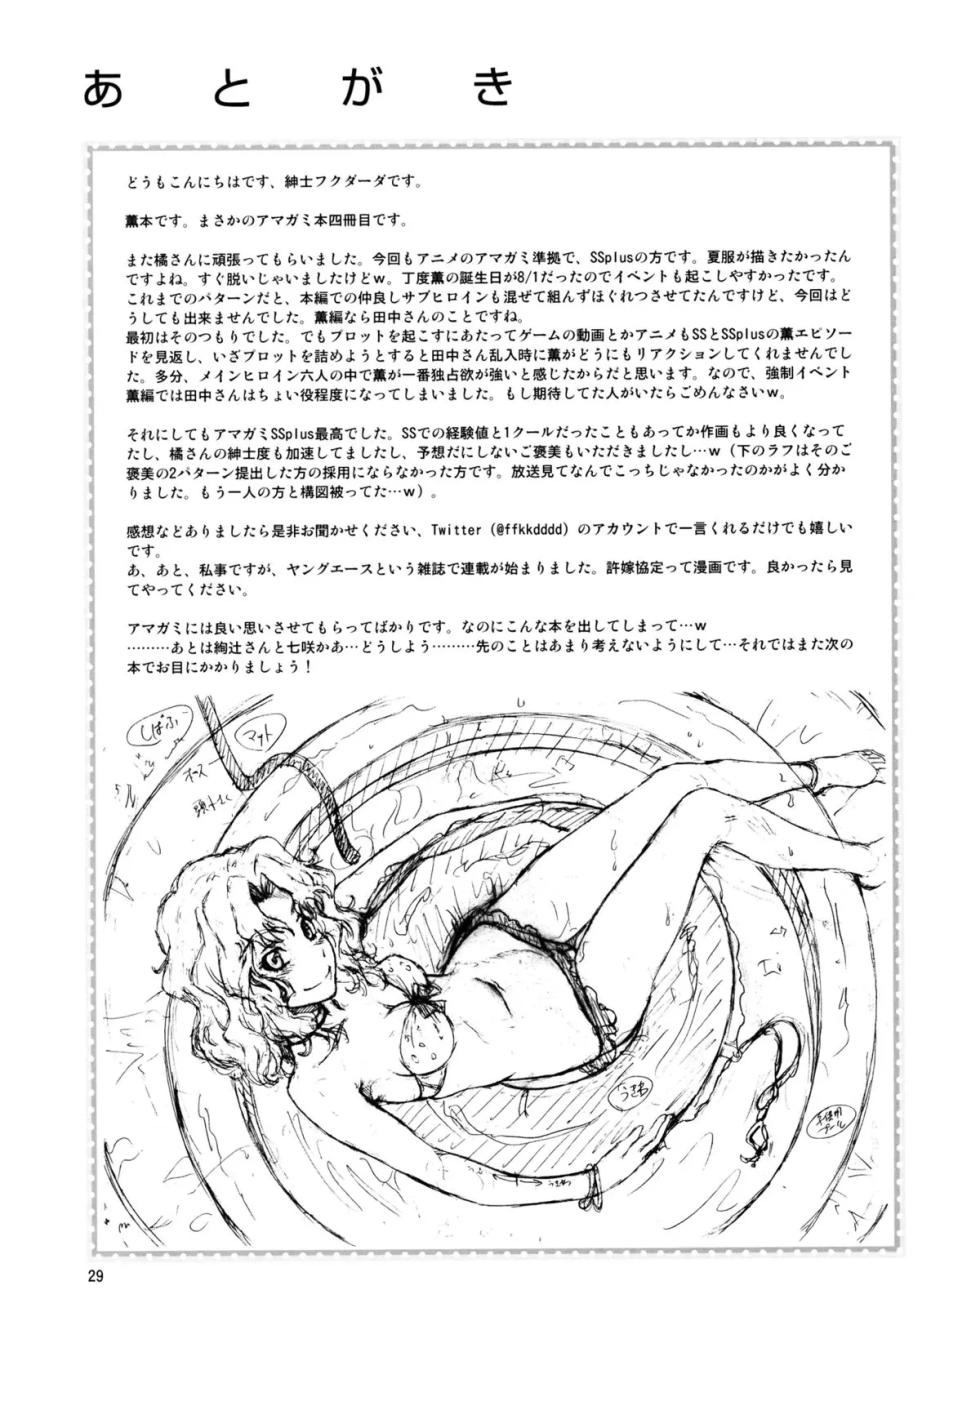 あとがき
どうもこんにちはです、紳士フクダーダです。
薫本です。まさかのアマガミ本四冊目です。
また橘さんに頑張ってもらいました。今回もアニメのアマガミ準拠で、SSplusの方です。夏服が描きたかったん
ですよね。すぐ脱いじゃいましたけどｗ。丁度薫の誕生日が8/1だったのでイベントも起こしやすかったです。
これまでのパターンだと、本編での仲良しサブヒロインも混ぜて組んずほぐれつさせてたんですけど、今回はど
うしても出来ませんでした。薫編なら田中さんのことですね。
最初はそのつもりでした。でもプロットを起こすにあたってゲームの動画とかアニメもSSとSSplusの薫エピソー
ドを見返し、いざプロットを詰めようとすると田中さん乱入時に薫がどうにもリアクションしてくれませんでし
た。多分、メインヒロイン六人の中で薫が一番独占欲が強いと感じたからだと思います。なので、強制イベント
薫編では田中さんはちょい役程度になってしまいました。もし期待してた人がいたらごめんなさいｗ。
それにしてもアマガミSSplus最高でした。SSでの経験値と1クールだったこともあってか作画もより良くなって
たし、橘さんの紳士度も加速してましたし、予想だにしないご褒美もいただきましたし…ｗ（下のラフはそのご
褒美の2パターン提出した方の採用にならなかった方です。放送見てなんでこっちじゃなかったのかがよく分か
りました。もう一人の方と構図被ってた…ｗ）。
感想などありましたら是非お聞かせください、Twitter（@ffkkdddd）のアカウントで一言くれるだけでも嬉しい
です。
あ、あと、私事ですが、ヤングエースという雑誌で連載が始まりました。許嫁協定って漫画です。良かったら見
てやってください。
アマガミには良い思いさせてもらってばかりです。なのにこんな本を出してしまって…ｗ
………あとは絢辻さんと七咲かあ…どうしよう………先のことはあまり考えないようにして…それではまた次の
本でお目にかかりましょう！
しばふ
マット
ホース
29